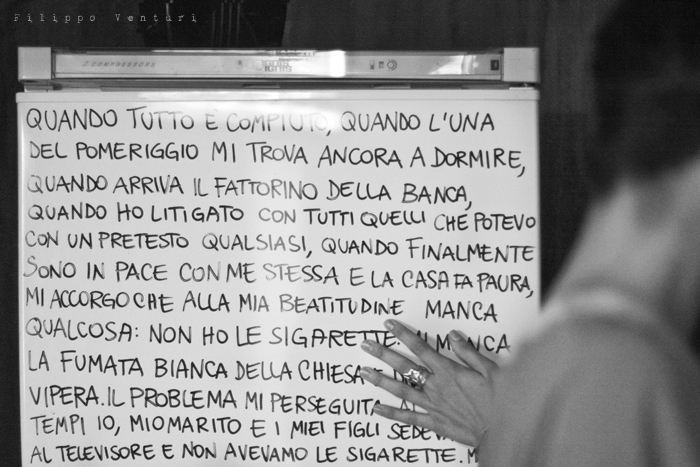 Filippo Venturi
2 COMPRESSORS
QUANDO TUTTO È COMPIUTO, QUANDO L'UNA
DEL POMERIGGIO MI TROVA ANCORA A DORMIRE,
QUANDO ARRIVA IL FATTORINO DELLA BANCA,
QUANDO HO LITIGATO CON TUTTI QUELLI CHE POTEVO
CON UN PRETESTO QUALSIASI, QUANDO FINALMENTE
SONO IN PACE CON ME STESSA E LA CASA FA PAURA,
MI ACCORGO CHE ALLA MIA BEATITUDINE MANCA
QUALCOSA: NON HO LE SIGARETTE. MI MANCA
LA FUMATA BIANCA DELLA CHIESA E
VIPERA. IL PROBLEMA MI PERSEGUITA
TEMPI IO, MIO MARITO E I MIEI FIGLI
AL TELEVISORE E NON AVEVAMO LE SIGARETTE.